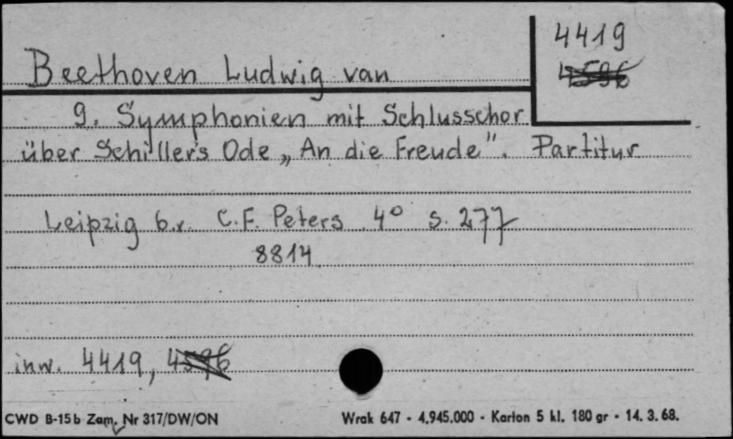 4419
4596
Beethoven Ludwig van
9. Symphonien mit Schlusschor
über Schiller's Ode „An die Freude". Partitur
Leipzig b.r. C.F. Peters 4° s. 277
8814
inw. 4419, 4596
CWD B-15b Zam. Nr 317/DW/ON Wrak 647 - 4.945.000 - Karton 5 kl. 180 gr - 14. 3. 68.